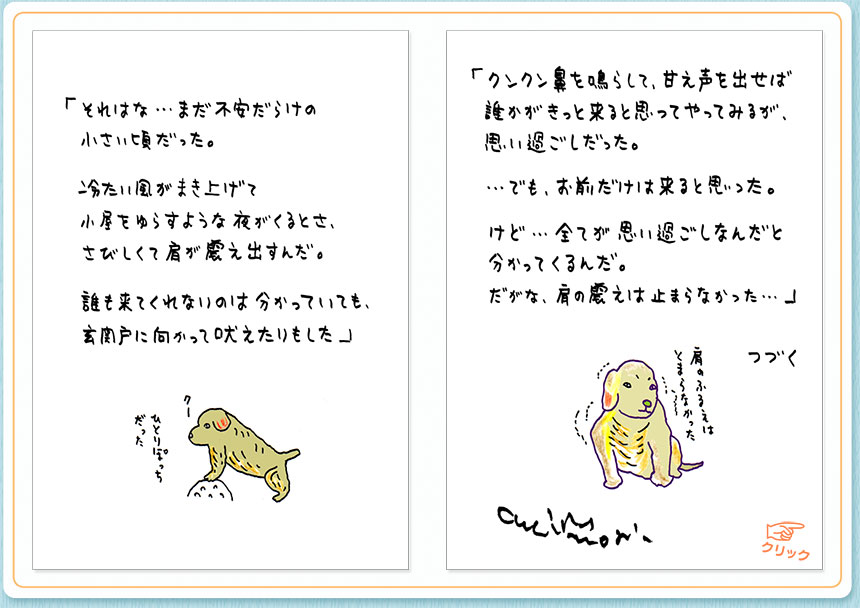 「それはな…まだ不安だらけの
小さい頃だった。
冷たい風がまき上げて
小屋をゆらすような夜がくるとさ、
さびしくて肩が震え出すんだ。
誰も来てくれないのは分かっていても、
玄関戸に向かって吠えたりもした」
クー
ひとりぼっち
だった
「クンクン鼻を鳴らして、甘え声を出せば
誰かがきっと来ると思ってやってみるが、
思い過ごしだった。
…でも、お前だけは来ると思った。
けど…全てが思い過ごしなんだと
分かってくるんだ。
だがな、肩の震えは止まらなかった…」
つづく
肩のふるえは
とまらなかった
クリック